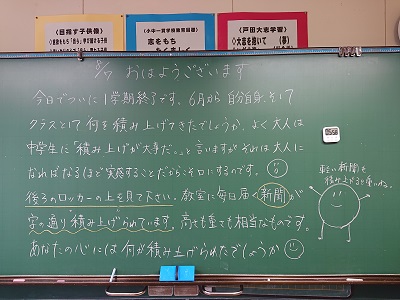 《目指す子供像》
小中一貫学校教育目標
志をもち
《戸田大志学習》
◇大志を抱いて
8/7 おはようございます
今日でついに1学期終了です。6月から自分自身、そして
クラスとして何を積み上げてきたでしょうか。よく大人は
中学生に「積み上げが大事だ。」と言いますがそれは大人に
なればなるほど実感することだからこそ口にするのです。
後ろのロッカーの上を見て下さい。教室に毎日届く新聞が
字の通り積み上げられています。高さも重さも相当なものです。
あなたの心には何が積み上げられたでしょうか
軽い新聞も
積み上げると重いね。